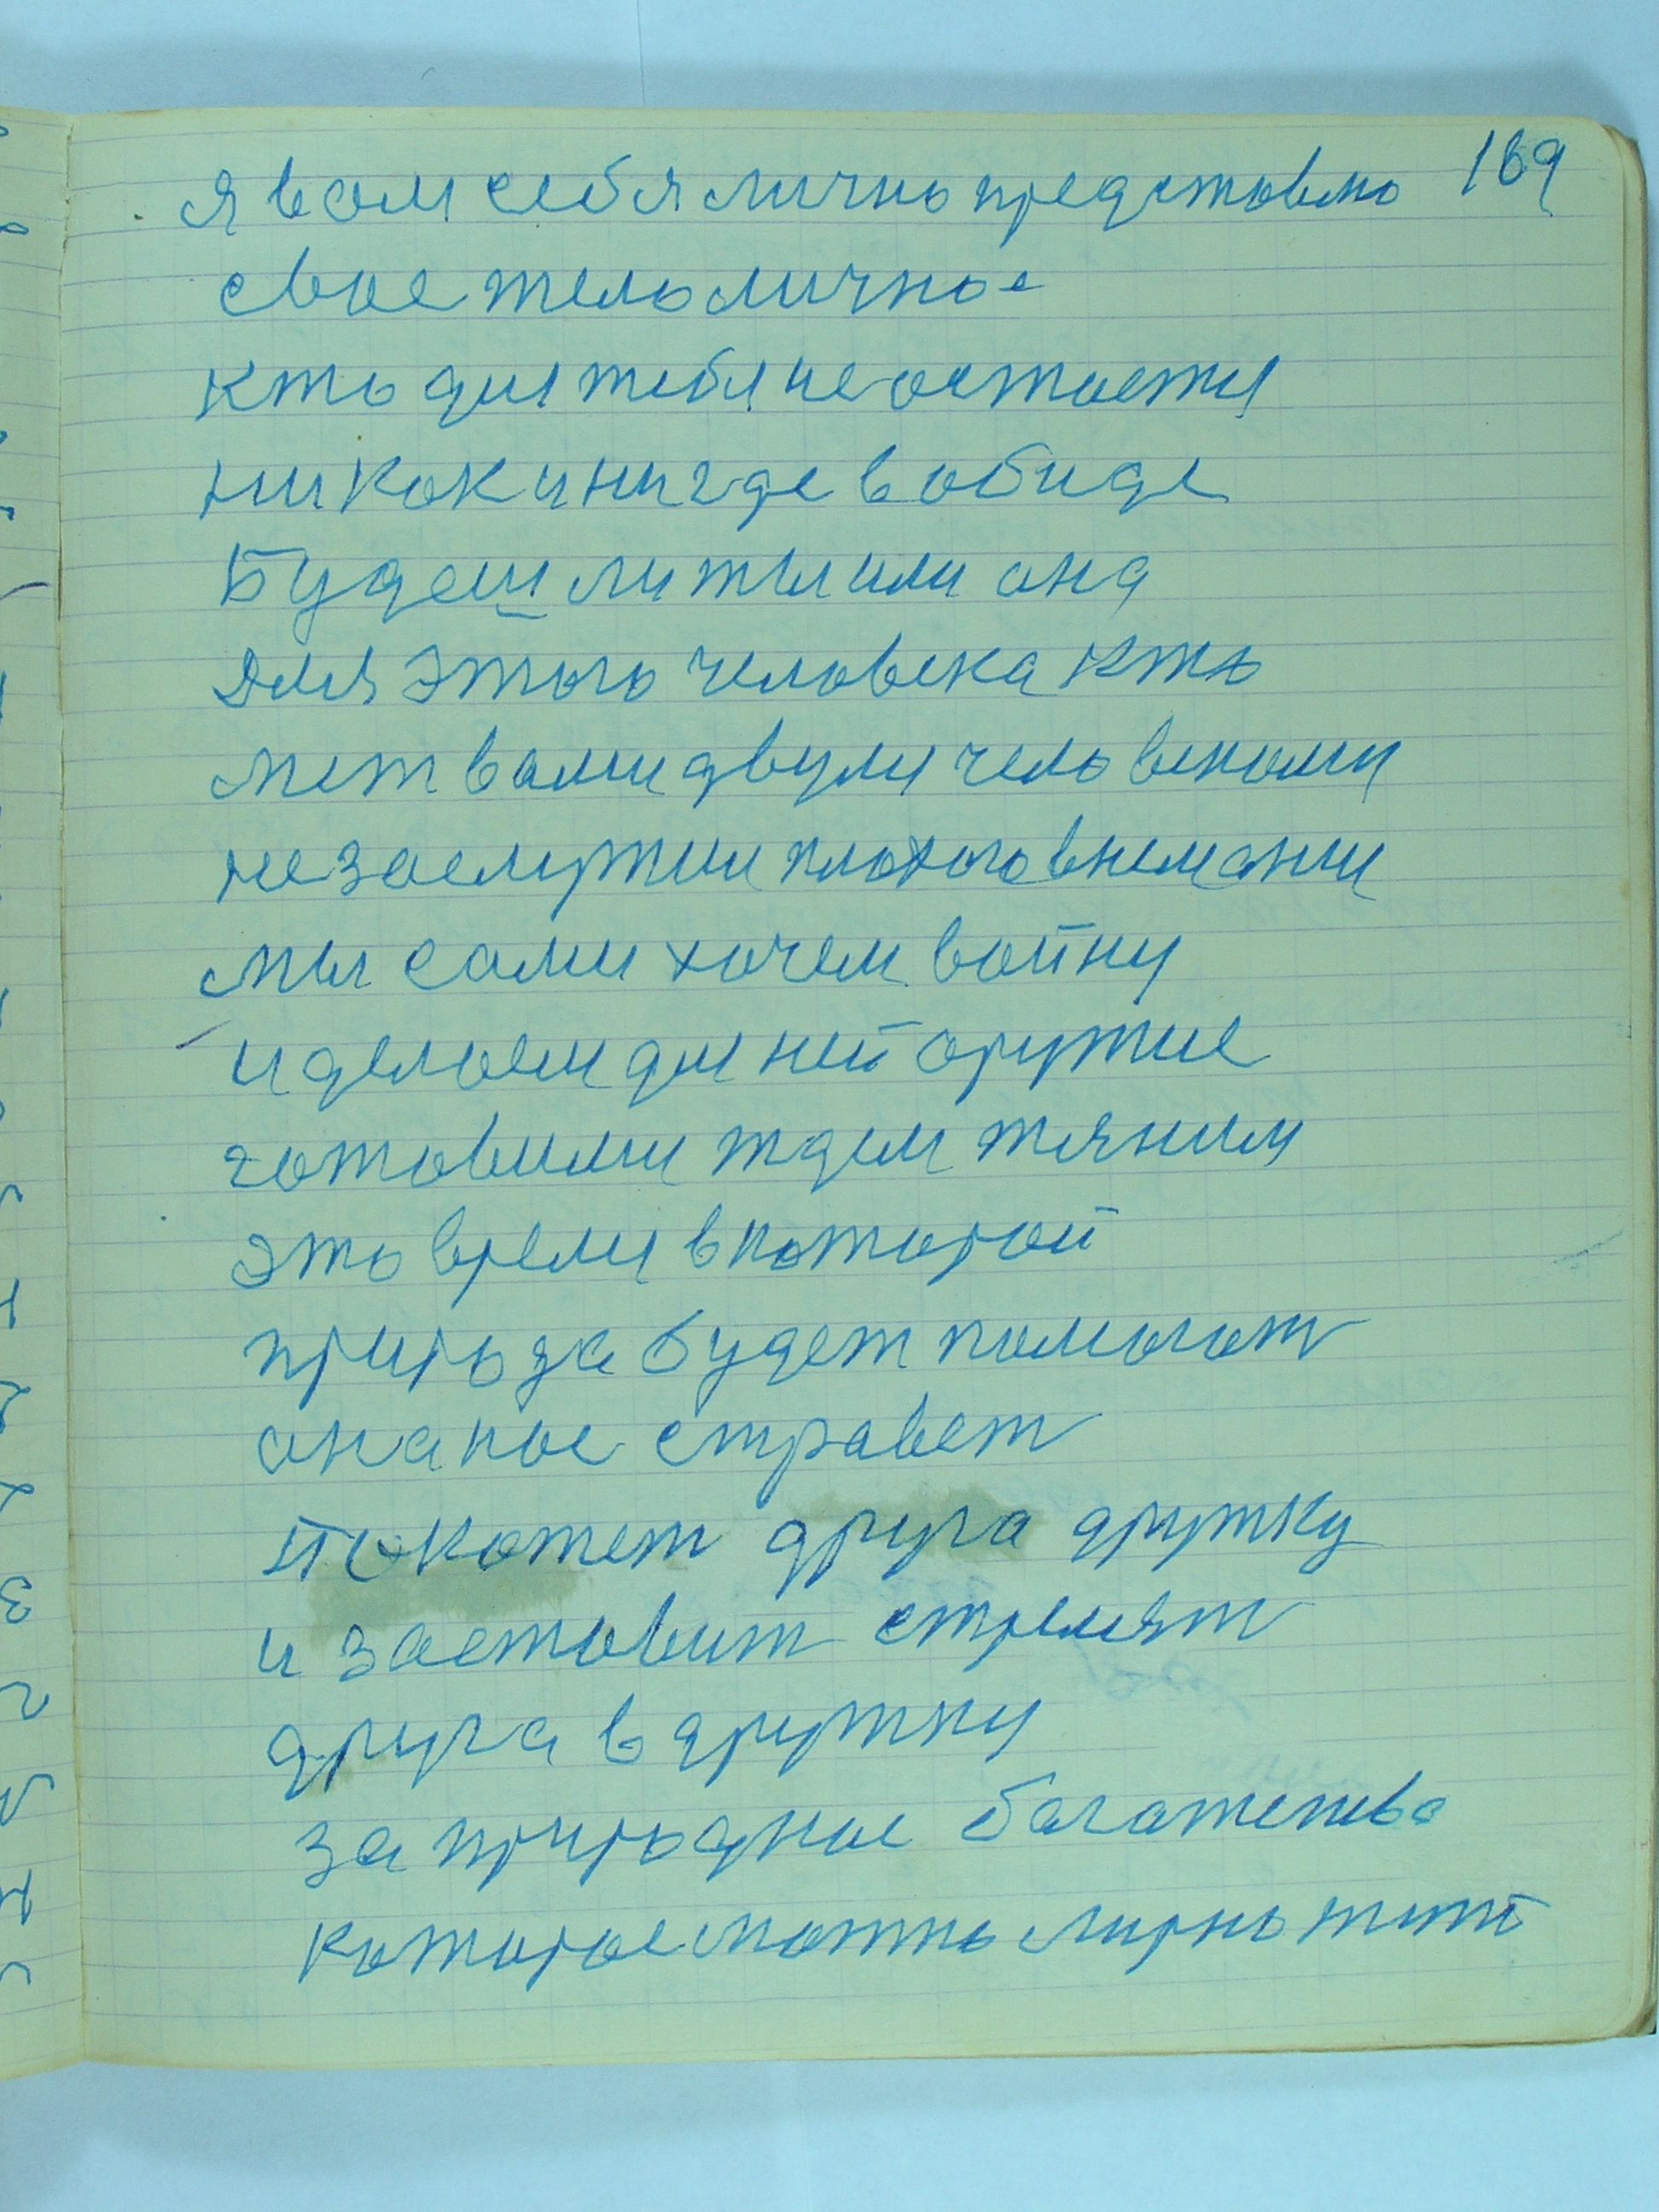 я вам себя лично представлю 169
свое тело личное
кто для тебя не остается
никак и нигде в обиде
Будеш ли ты или она
для этого человека кто
меж вами двумя человеками
не заслужии плохого внемании
мы сами хочем войну
и делаем для ней оружие
готовимы ждем тяним
это время в которой
природа будет помогат
она нас стравет
Покажет друга дружку
и заставит стрелят
друга в дружку
за природное багатенства
которое можно мирно жит